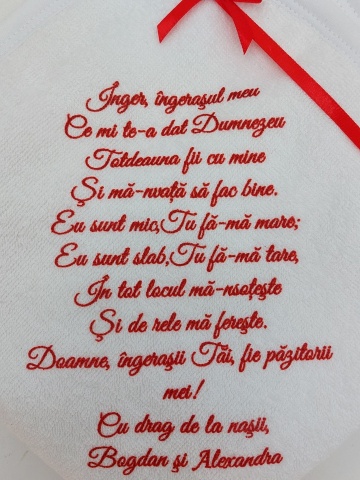 Înger, îngerașul meu
Ce mi te-a dat Dumnezeu
Totdeauna fii cu mine
Și mă-nvață să fac bine.
Eu sunt mic,Tu fă-mă mare;
Eu sunt slab,Tu fă-mă tare,
În tot locul mă-nsoțește
Și de rele mă ferește.
Doamne, îngerașii Tăi, fie păzitorii
mei!
Cu drag de la nașii,
Bogdan și Alexandra